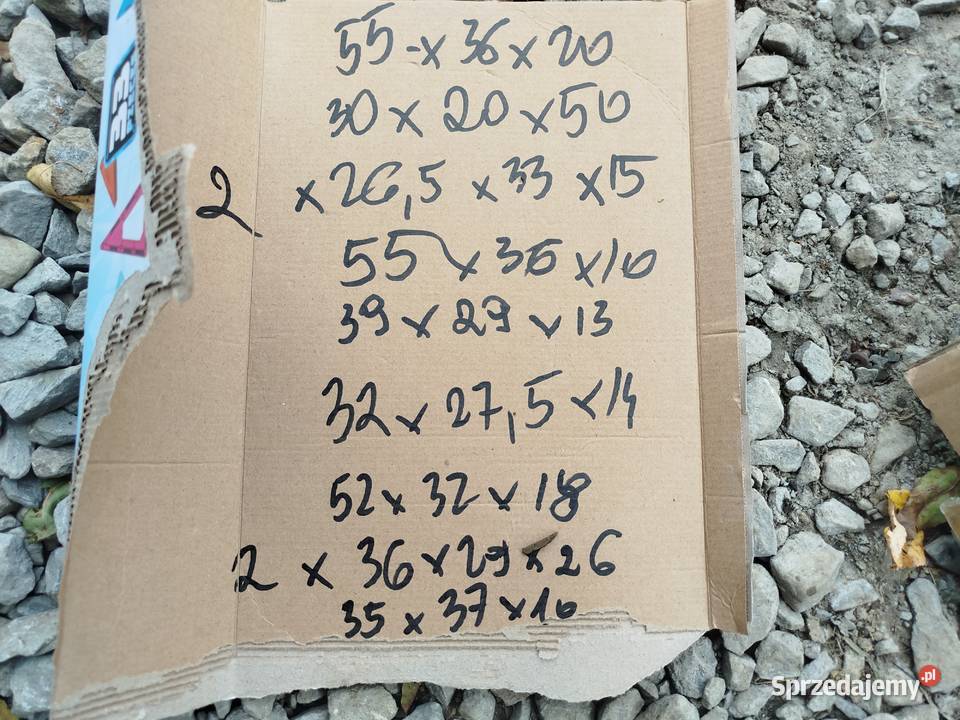 55 x 36 x 20
30 x 20 x 50
2 x 26,5 x 33 x 15
55 x 36 x 10
39 x 29 x 13
32 x 27,5 x 14
52 x 32 x 18
2 x 36 x 29 x 26
35 x 37 x 10
Sprzedajemy.pl